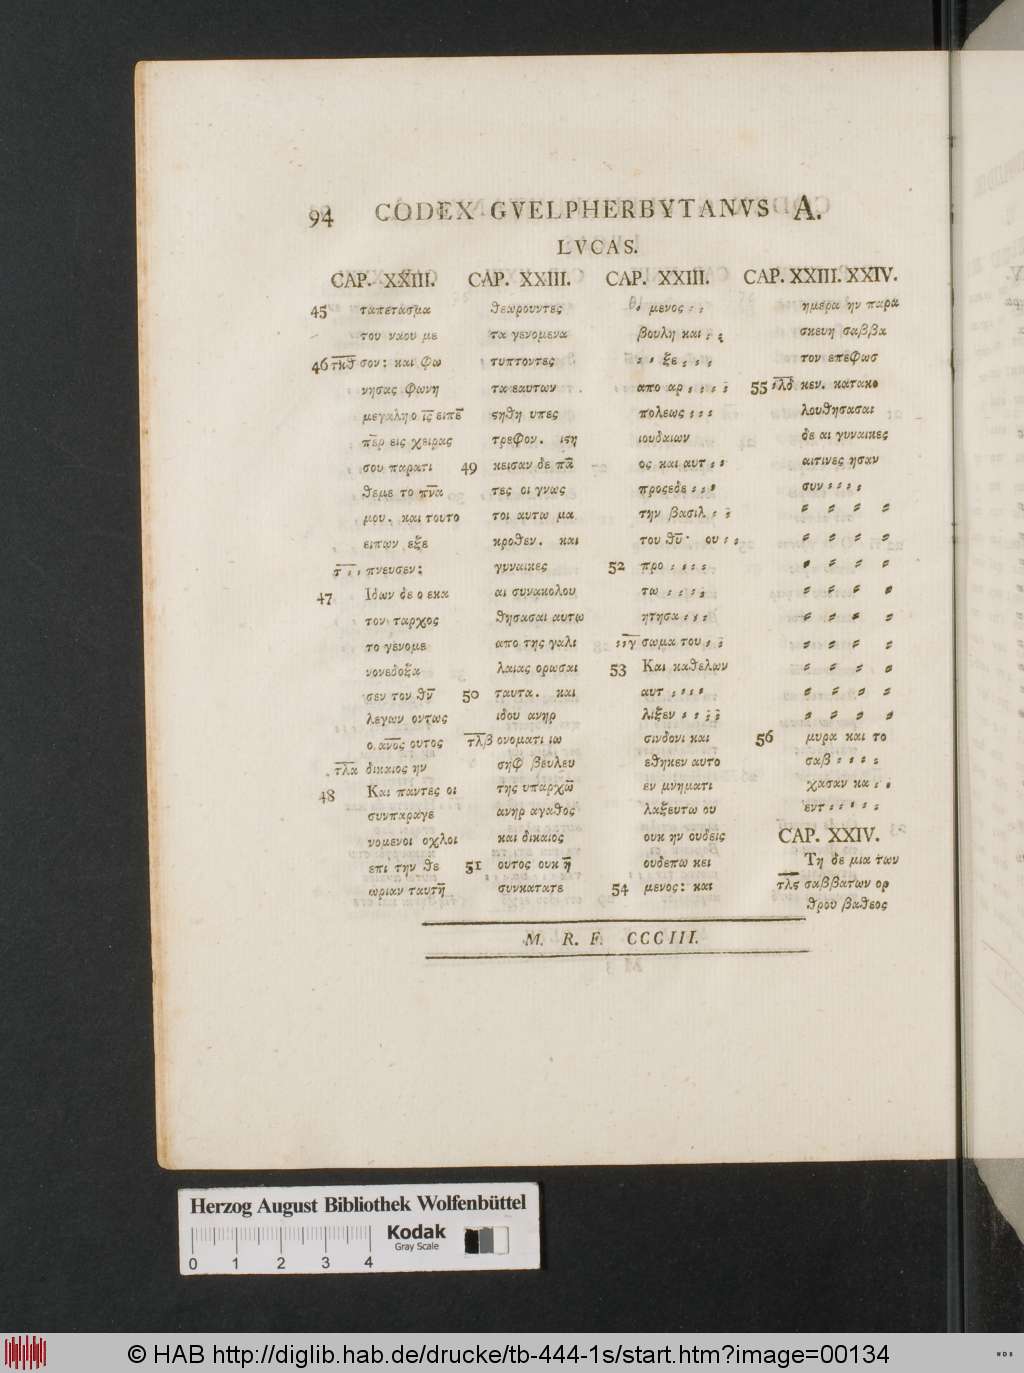 94 CODEX GVELPHERBYTANVS A.
LVCAS.
CAP. XXIII.
45 ταπετασμα
του ναου με
46 τκθ σον: και φω
νησας φωνη
μεγαλη ο ις ειπε
περ εις χειρας
σου παρατι
θεμε το πνα
μου. και τουτο
ειπων εξε
πνευσεν:
47 Ιδων δε ο εκα
τον ταρχος
το γενομε
νονεδοξα
σεν τον θν
λεγων οντως
ο ανος ουτος
τλα δικαιος ην
48 Και παντες οι
συνπαραγε
νομενοι οχλοι
επι την θε
ωριαν ταυτη
CAP. XXIII.
θεωρουντες
τα γενομενα
τυπτοντες
τα εαυτων
ςηθη υπες
τρεφον. ιςη
49 κεισαν δε πα
τες οι γνως
τοι αυτω μα
κροθεν. και
γυναικες
αι συνακολου
θησασαι αυτω
απο της γαλι
λαιας ορωσαι
50 ταυτα. και
ιδου ανηρ
τλβ ονοματι ιω
σηφ βευλευ
της υπαρχω
ανηρ αγαθος
και δικαιος
51 ουτος ουκ η
συνκατατε
CAP. XXIII.
θι μενος : :
βουλη και : :
: : ξε : : :
απο αρ : : : :
πολεως : : :
ιουδαιων
ος και αυτ : :
προςεδε : : :
την βασιλ : :
του θυ· ου : :
52 προ : : : :
τω : : : :
ητησα : : :
: : γ σωμα του : :
53 Και καθελων
αυτ : : : :
λιξεν : : : :
σινδονι και
εθηκεν αυτο
εν μνηματι
λαξευτω ου
ουκ ην ουδεις
ουδεπω κει
54 μενος: και
CAP. XXIII. XXIV.
ημερα ην παρα
σκευη σαββα
τον επεφωσ
55 τλδ κεν. κατακο
λουθησασαι
δε αι γυναικες
αιτινες ησαν
συν : : : :
: : : :
: : : :
: : : :
: : : :
: : : :
: : : :
: : : :
: : : :
: : : :
56 μυρα και το
σαβ : : : :
χασαν κα : :
εντ : : : : :
CAP. XXIV.
Τη δε μια των
τλς σαββατων ορ
θρου βαθεος
M. R. F. CCCIII.
Herzog August Bibliothek Wolfenbüttel
Kodak
Gray Scale
0 1 2 3 4
© HAB http://diglib.hab.de/drucke/tb-444-1s/start.htm?image=00134